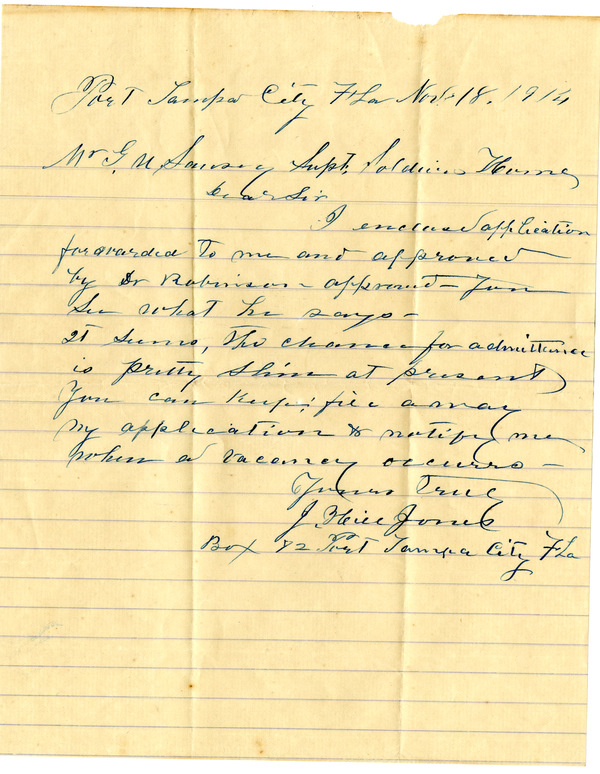 Port Tampa City Fla Nov 18. 1914
Mr G. N Supt. Soldiers Home
Dear Sir
I enclosed application
forwarded to me and approved
by Dr Robinson approved - You
See what he says -
It seems, the chance for admittance
is pretty slim at present
You can keep, file away
my application & notify me
when a vacancy occurrs -
Yours Truly
J Hill Jones
Box 82 Port Tampa City Fla